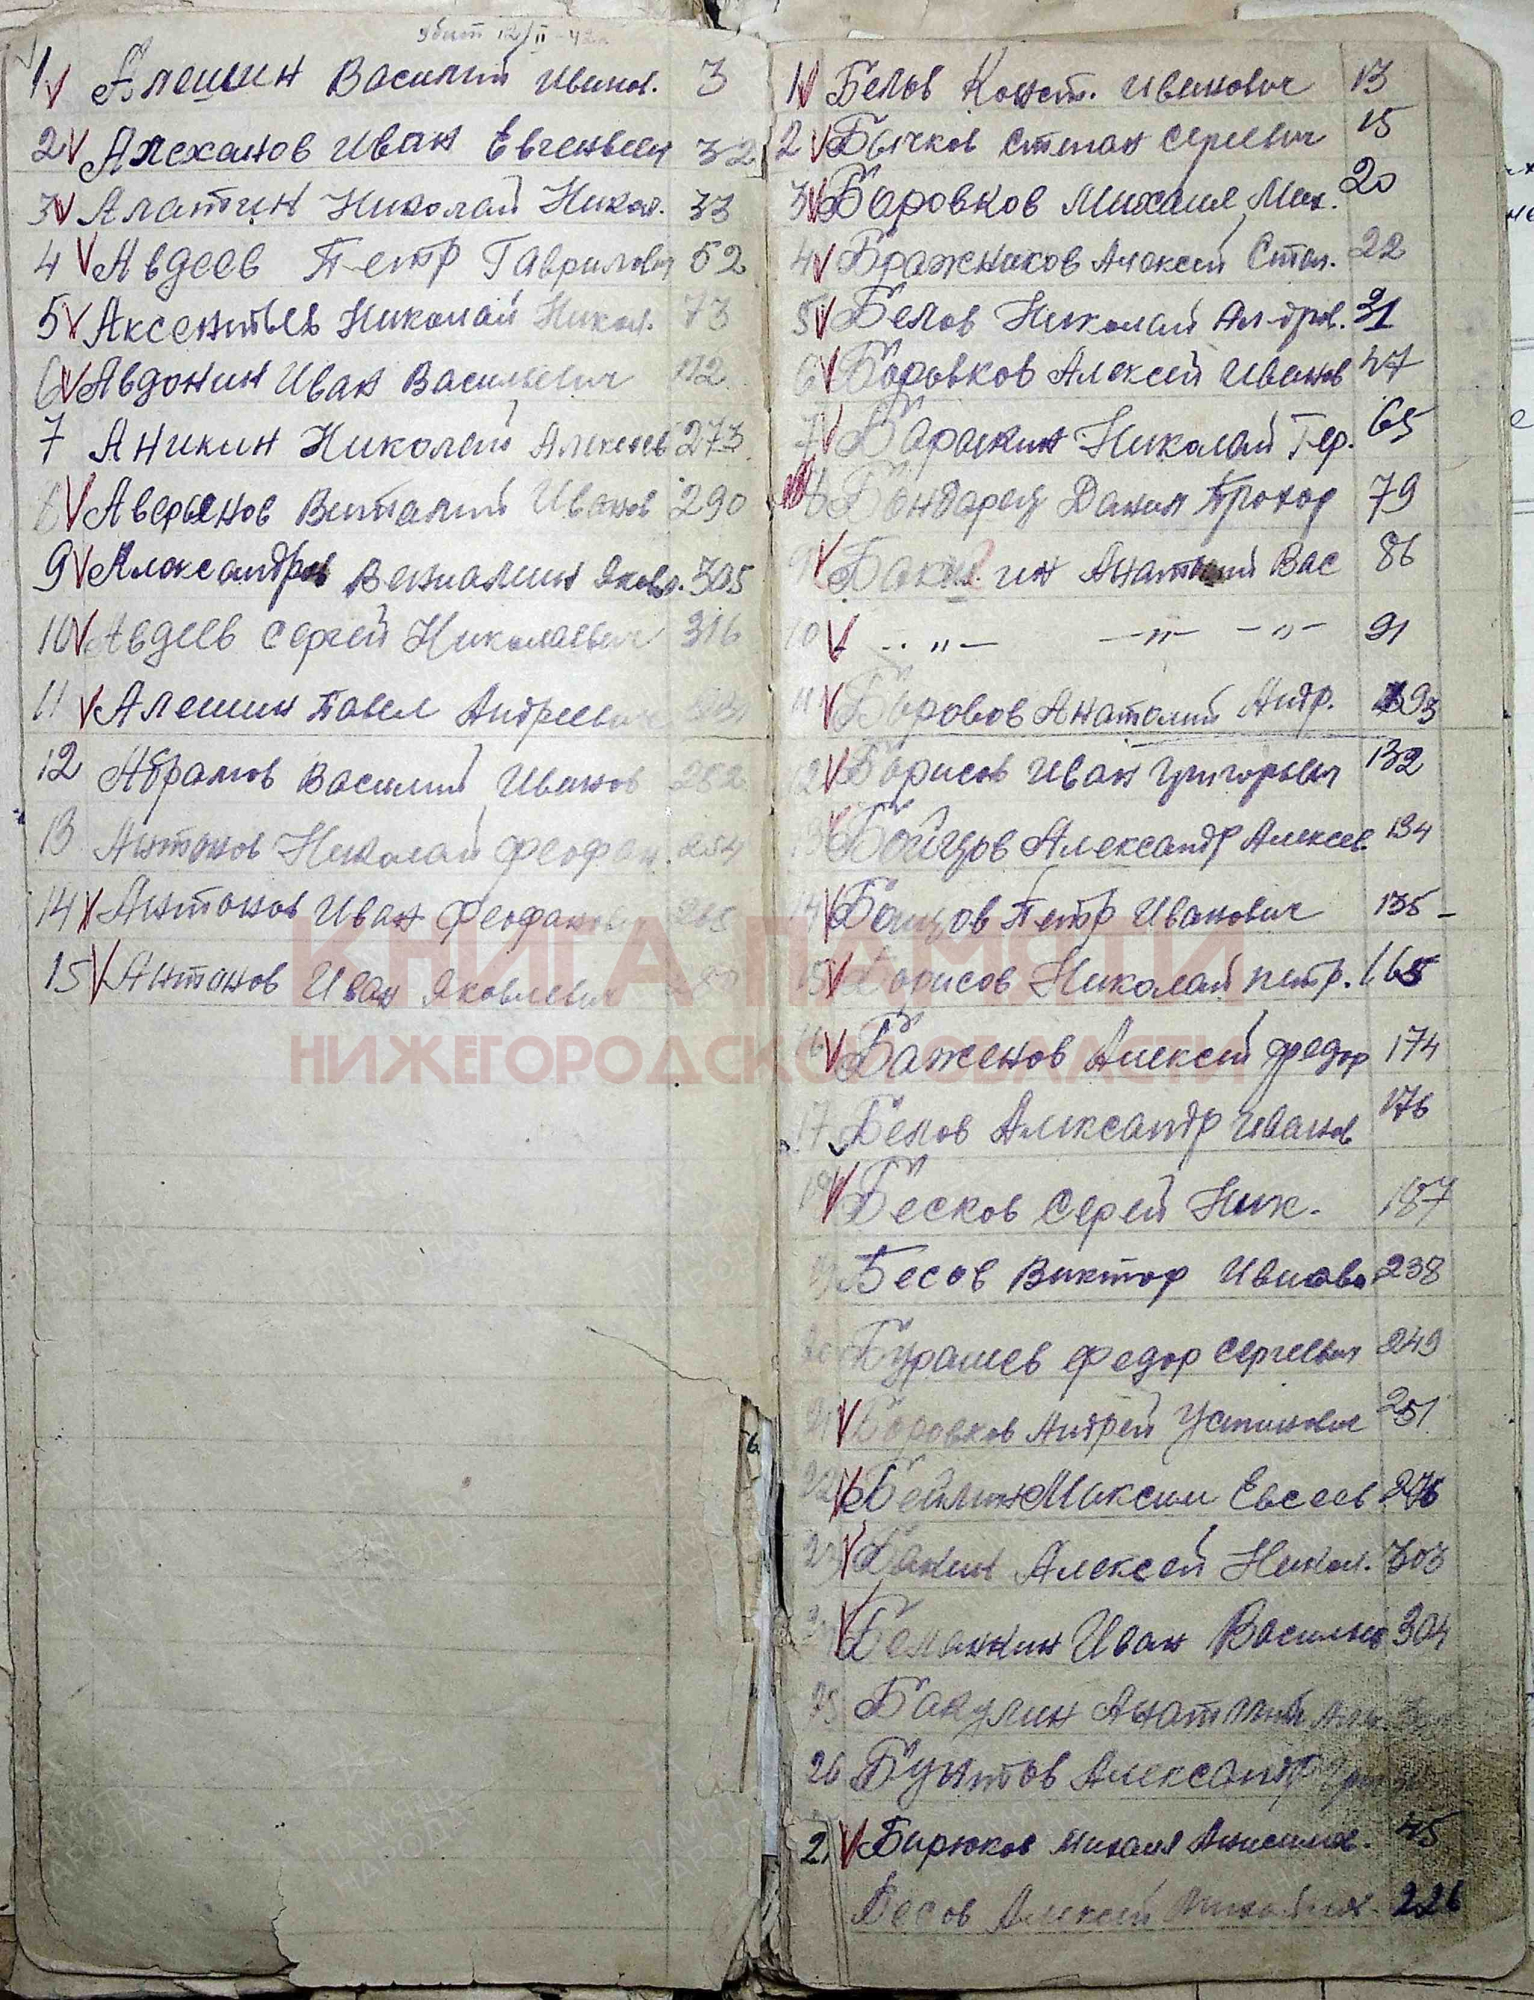 убит 12/II-42г
1 v Алешин Василий Иванов. 3
2 v Алеханов Иван Евгеньевич 32
3 v Алатин Николай Никол. 33
4 v Авдеев Петр Гаврилович 52
5 v Аксентьев Николай Никол. 73
6 v Авдонин Иван Васильевич 112
7 Аникин Николай Алексеев 273
8 v Аверьянов Виталий Иванов 290
9 v Александров Вениамин Яковл. 305
10 v Авдеев Сергей Николаевич 316
11 v Алешин Павел Андреевич
12 Абрамов Василий Иванов 282
13 Антонов Николай Феофан. 254
14 v Антонов Иван Феофанов 265
15 v Антонов Иван Яковлевич
1 v Белов Конст. Иванович 13
2 v Бычков Степан Сергеевич 15
3 v Боровков Михаил Мих. 20
4 v Бражников Алексей Степ. 22
5 v Белов Николай Ал-дров. 31
6 v Боровков Алексей Иванов 47
7 v Баранкин Николай Гер. 65
8 Бондарец Данил Прохор 79
9 v Бакин Анатолий Вас 86
10 v -"- -"- -"- 91
11 v Боровов Анатолий Андр. 93
12 v Борисов Иван Григорьевич 132
13 Бойцов Александр Алексеев. 134
14 v Бойцов Петр Иванович 135 -
15 v Борисов Николай Петр. 165
16 v Баженов Алексей Федор 174
17 v Белов Александр Иванов 176
18 v Бесков Сергей Ник. 187
19 Бесов Виктор Иванов. 238
20 Бурашев Федор Сергеевич 249
21 v Боровков Андрей Устинович 251
22 v Бейлин Максим Евсеев 276
23 v Бакин Алексей Никол. 303
24 v Беланкин Иван Васильев 304
25 Бакулин Анатолий
26 Бунтов Александр
27 v Бирюков Михаил Анисимов. 45
Бесов Алексей Михайлов. 226
КНИГА ПАМЯТИ
НИЖЕГОРОДСКОЙ ОБЛАСТИ